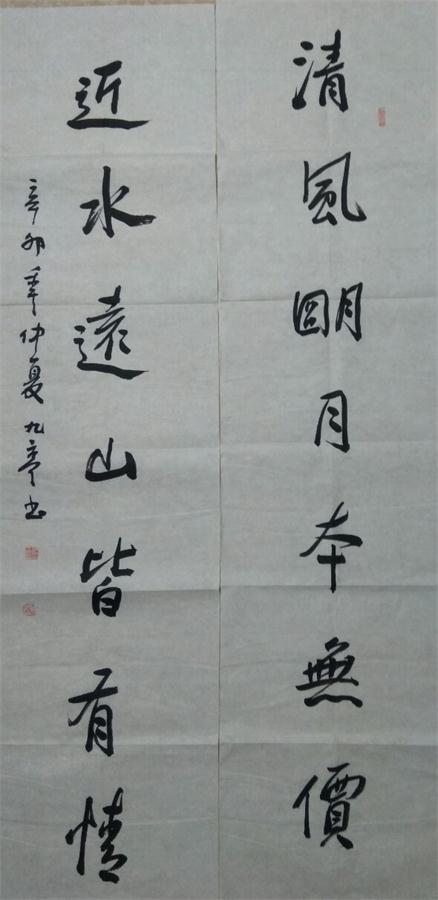 清風明月本無價
近水遠山皆有情
辛卯年仲夏九亭书